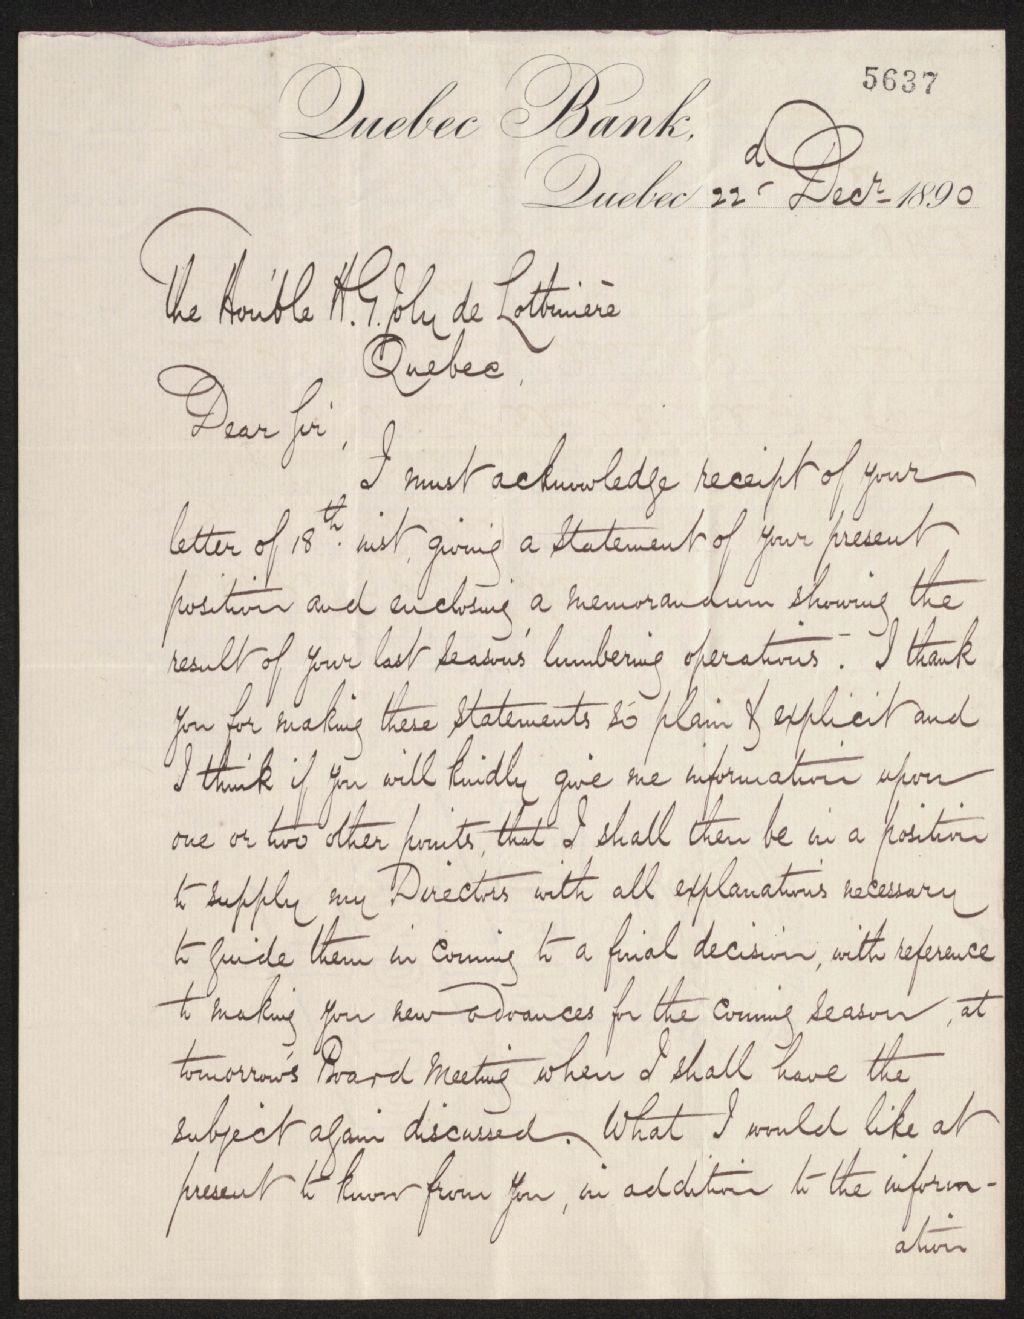 5637
Quebec Bank,
Quebec 22d Decr 1890
The Hon'ble H. G. Joly de Lotbinière
Quebec,
Dear Sir,
I must acknowledge receipt of your
letter of 18th. inst, giving a statement of your present
position and enclosing a memorandum showing the
result of your last season's lumbering operations. I thank
you for making these statements so plain & explicit and
I think if you will kindly give me information upon
one or two other points, that I shall then be in a position
to supply my Directors with all explanations necessary
to guide them in coming to a final decision, with reference
to making you new advances for the coming season, at
tomorrow's Board Meeting when I shall have the
subject again discussed. What I would like at
present to know from you, in addition to the inform-
ation